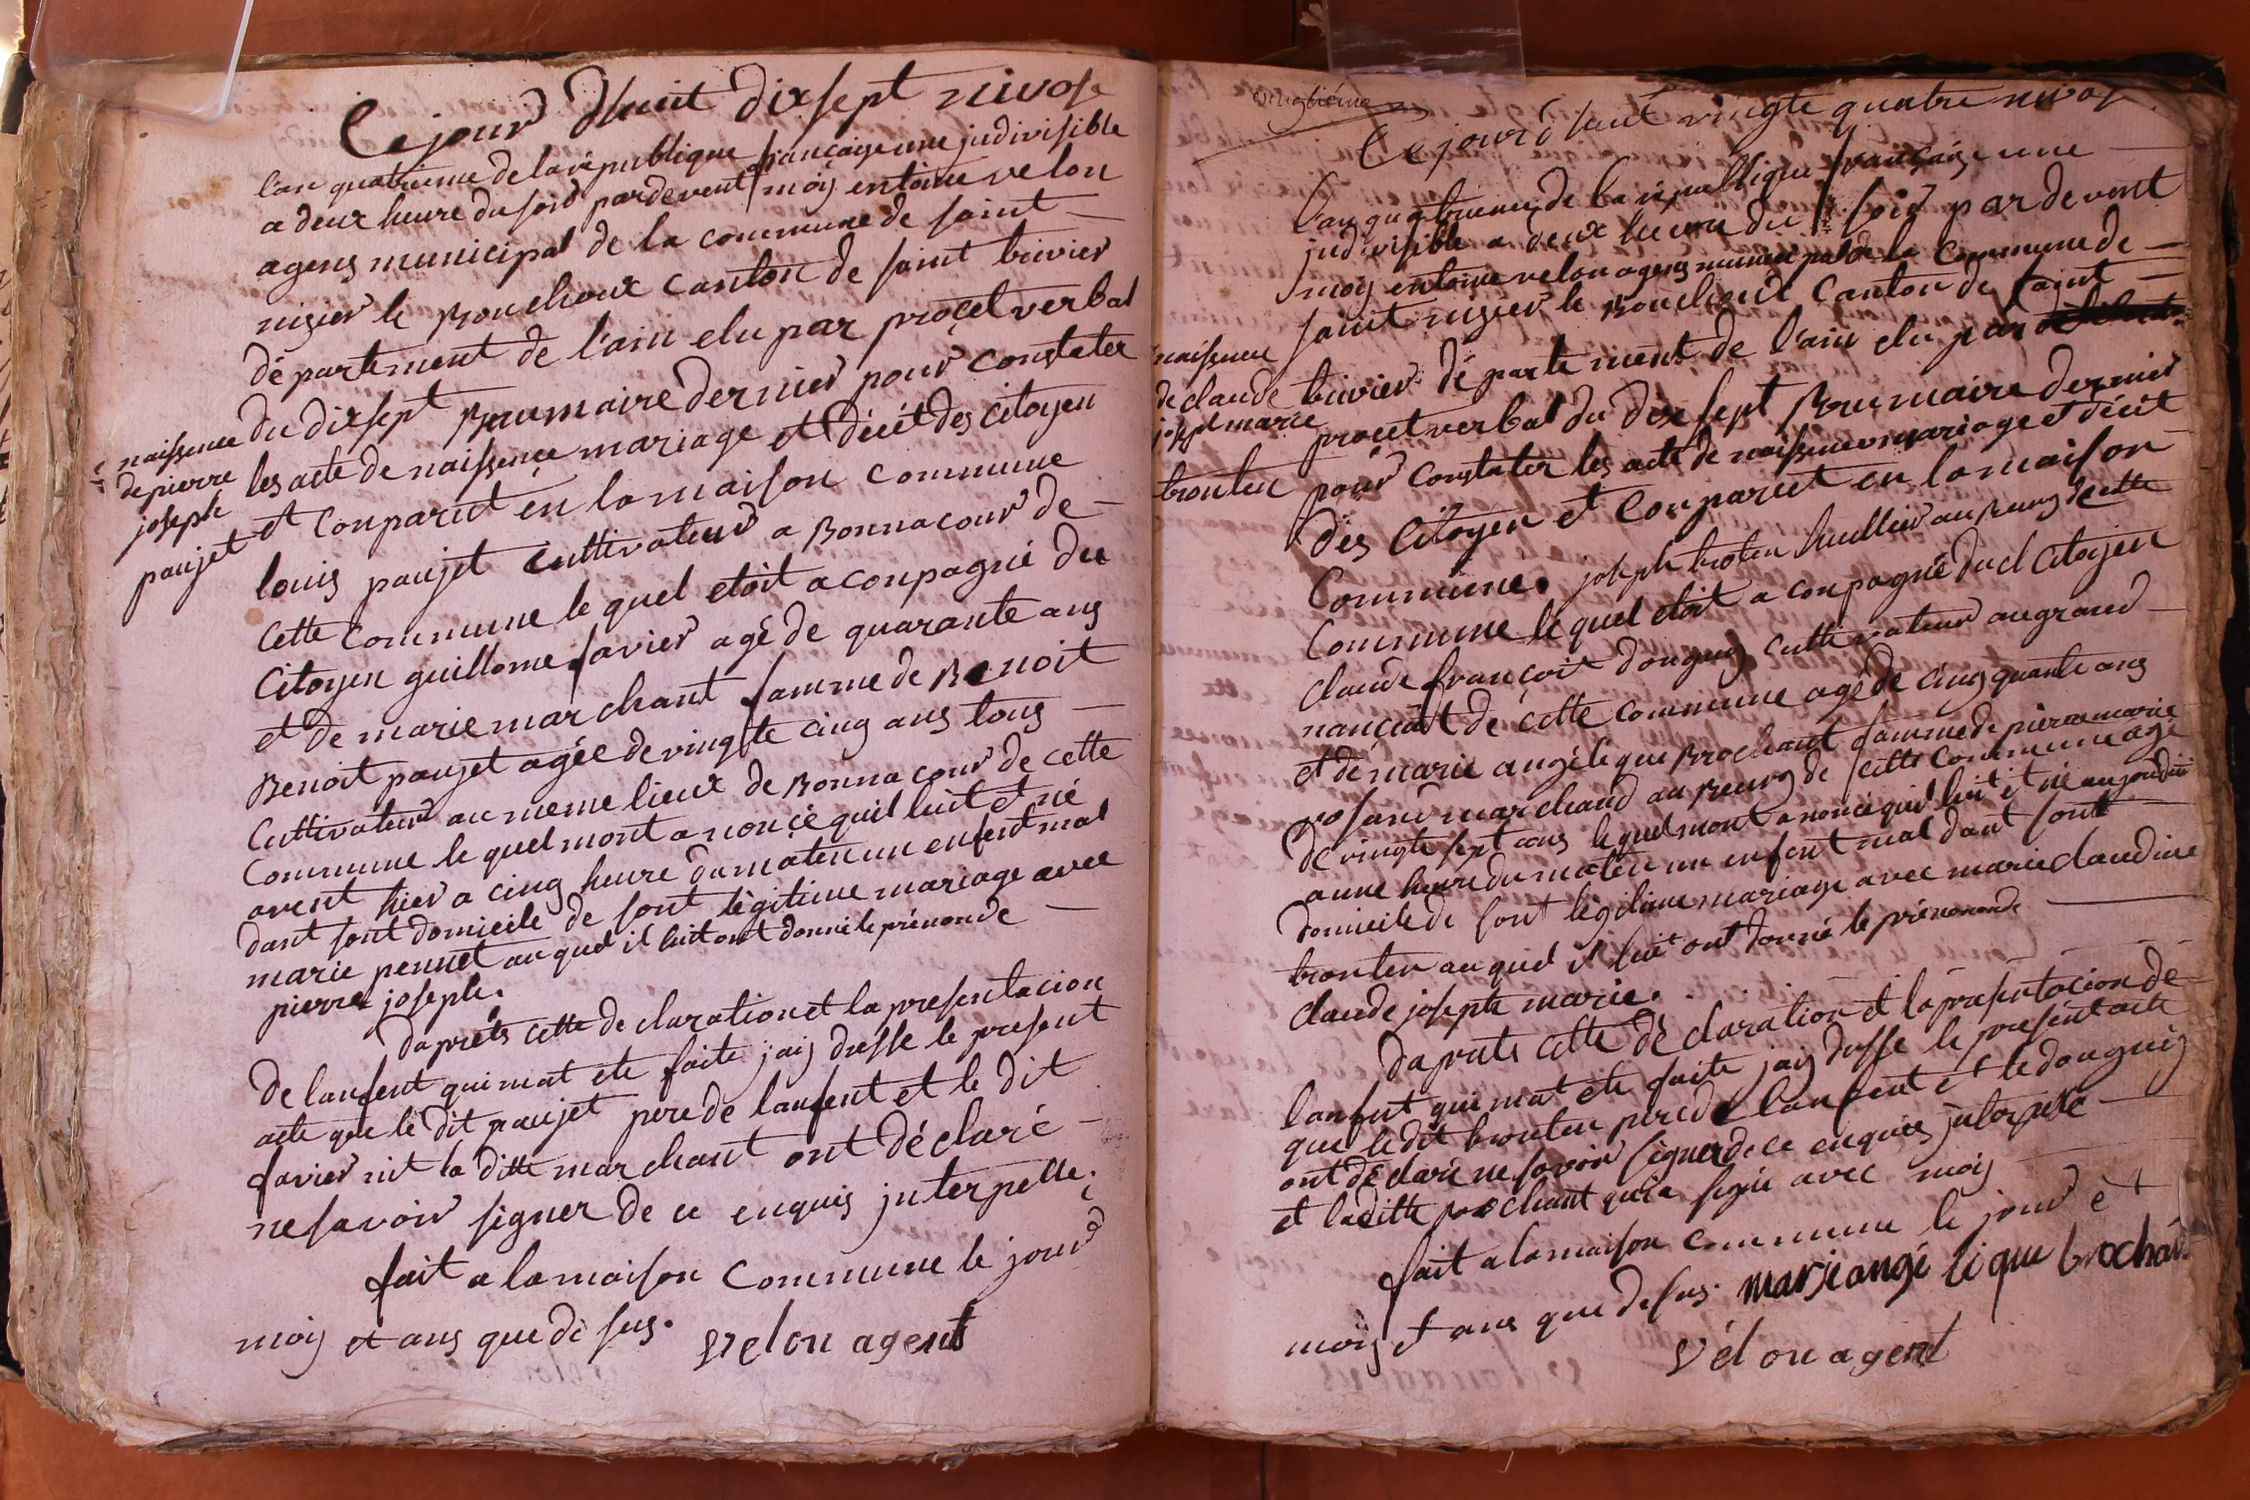 Ce jour d'huit dixsept nivose
l'an quatrieme de la republique française une jndivisible
a deux heure du soir pardevent moiy entoine velon
agens municipal de la commune de saint
nisier le Bouchoux canton de saint trivier
département de l'ain elu par procet verbal
du dixsept Brumaire dernier pour constater
les acte de naissence mariage et décét des citoyen
et conparut en la maison commune
louis paujet cultivateur a Bonnacour de
cette commune le quel etoit aconpagné du
citoyen guillome favier agé de quarante ans
et de marie marchant famme de Benoit
Benoit paujet agée de vingte cinq ans tous
cultivateur au meme lieux de Bonnacour de cette
commune le quel mont anoncé quil luit et né
avent hier a cinq heure du maten un enfent mal
dant sont domicile de sont légitime mariage avec
marie pennet auquel il luit ont donné le prénon de
pierre joseph.
daprets cette declaration et la presentacion
de lanfent qui mat ete faite jaiy dresse le present
acte que le dit paujet pere de lanfent et le dit
favier nit la ditte marchant ont déclaré
ne savoir signer de ce enquis jnterpelle.
fait a la maison commune le jour
moiy et ans que de sus. velon agent
naissence
de pierre
joseph
paujet
vingtiéme
Ce jour d'huit vingte quatre nivos
l'an quatrieme de la republique française une
jndivisible a deux heure du soir par devent
moiy entoine velon agens municipal de la commune de
saint nisier le Bouchoux canton de saint
trivier département de l'ain elu par
procet verbal du dixsept Brumaire dernier
pour constater les acte de naissence mariage et décét
des citoyen et conparut en la maison
commune. joseph broten huillier au Bourg de cette
commune le quel etoit aconpagné du citoyen
claude françois donguy cultivateur au grand
nanciat de cette commune agé de cinquante ans
et de marie angélique Brochant famme de pierre marie
marchand au Bourg de cette commune age
de vingte sept ans lequel mont anoncé quil luit et né aujourdui
a une heure du maten un enfent mal dant sont
domicile de sont légitime mariage avec marie claudine
bronten auquel il luit ont donné le prénon de
claude joseph marie.
daprets cette déclaration et la présentacion de
lanfent qui mat ete faite jaiy dresse le present acte
que ledit bronten pere de lanfent et le donguiy
ont déclaré ne savoir signer de ce enquis jnterpellé
et la ditte brochant qui a signé avec moiy
fait a la maison commune le jour et
moiy et ans que de sus. marie angé li que brochan
vélon agent
naissence
de claude
joseph marie
bronten